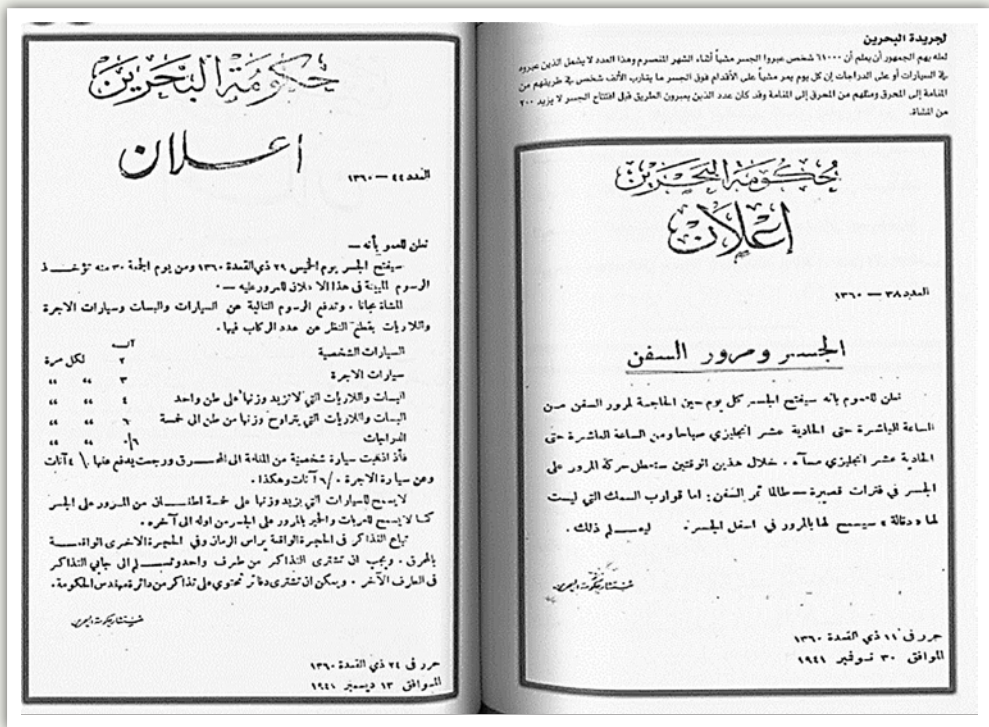 لجريدة البحرين
لعله يهم الجمهور أن يعلم أن ٦١٠٠٠ شخص عبروا الجسر مشياً أثناء الشهر المنصرم وهذا العدد لا يشمل الذين عبروه
في السيارات أو على الدراجات إن كل يوم يمر مشياً على الأقدام فوق الجسر ما يقارب الألف شخص في طريقهم من
المنامة إلى المحرق ومثلهم من المحرق إلى المنامة وقد كان عدد الذين يعبرون الطريق قبل افتتاح الجسر لا يزيد ٢٠٠
من المشاة.
حكومة البحرين
إعلان
العدد ٣٨ — ١٣٦٠
الجسر ومرور السفن
نعلن للعموم بانه سيفتح الجسر كل يوم حين الحاجة لمرور السفن من
الساعة العاشرة حتى الحادية عشر انجليزي صباحا ومن الساعة العاشرة حتى
الحادية عشر انجليزي مسآء . خلال هذين الوقتين ستعطل حركة المرور على
الجسر في فترات قصيرة — طالما تمر السفن : اما قوارب السمك التي ليست
لها « دقالة » سيسمح لها بالمرور في اسفل الجسر . ليعلم ذلك .
حرر في ١١ ذي القعدة ١٣٦٠
الموافق ٣٠ نوفمبر ١٩٤١
حكومة البحرين
اعلان
العدد ٤٤ — ١٣٦٠
نعلن للعموم بأنه —
سيفتح الجسر يوم الخميس ٢٩ ذي القعدة ١٣٦٠ ومن يوم الجمعة ٣٠ منه تؤخذ
الرسوم المبينة في هذا الاعلان للمرور عليه — .
المشاة مجانا . وتدفع الرسوم التالية عن السيارات والبسات وسيارات الاجرة
واللاريات بقطع النظر عن عدد الركاب فيها .
آنه
السيارات الشخصية ٢ لكل مرة
سيارات الاجرة ٣ " "
البسات واللاريات التي لا تزيد وزنها على طن واحد ٤ " "
البسات واللاريات التي يتراوح وزنها من طن الى خمسة ٦ " "
الدراجات ٠/٦ " "
فأذا ذهبت سيارة شخصية من المنامة الى المحرق ورجعت يدفع عنها ٤ آنات
وعن سيارة الاجرة ٦ آنات وهكذا .
لا يسمح للسيارات التي يزيد وزنها على خمسة اطنان من المرور على الجسر
كما لا يسمح للعربات والحمير بالمرور على الجسر من اوله الى آخره .
تباع التذاكر في الحجرة الواقعة براس الرمان وفي الحجرة الاخرى الواقعة
بالمحرق . ويجب ان تشترى التذاكر من طرف واحد وتسلم الى جابي التذاكر
في الطرف الآخر . ويمكن ان تشترى دفاتر تحتوي على تذاكر من دائرة مهندس الحكومة .
حرر في ٢٤ ذي القعدة ١٣٦٠
الموافق ١٣ ديسمبر ١٩٤١